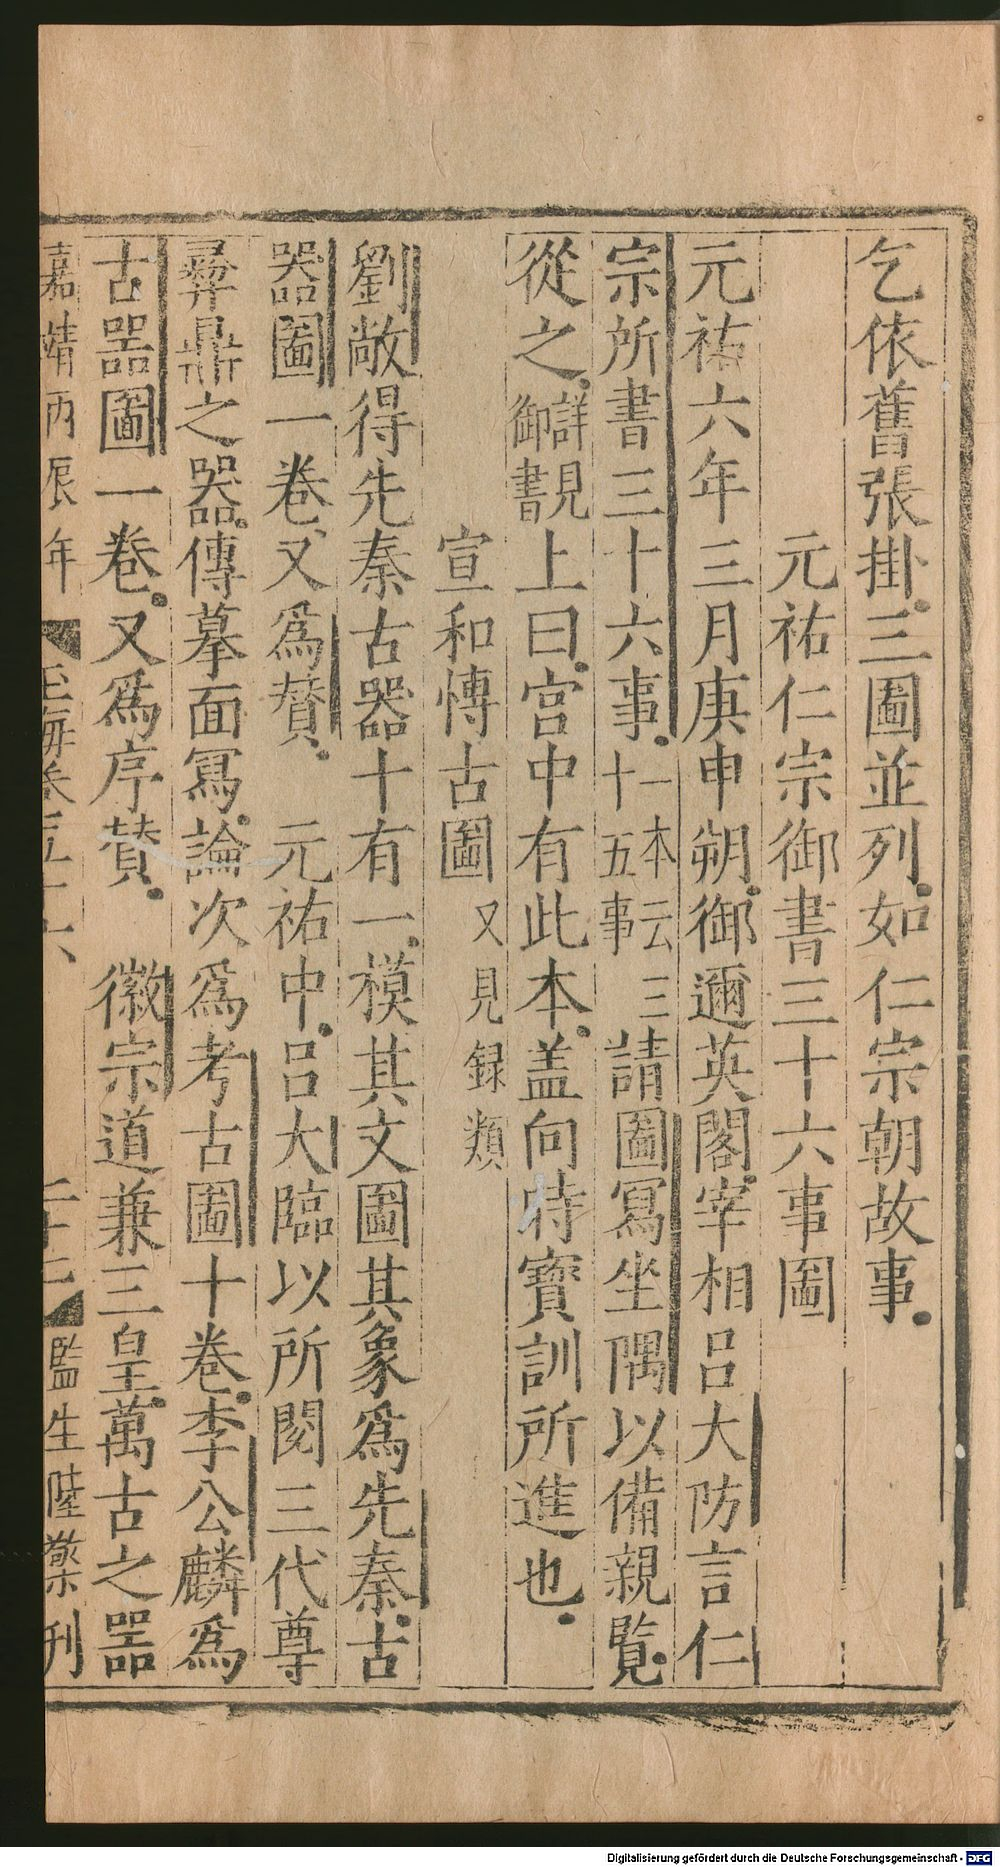 乞依舊張掛三圖並列如仁宗朝故事
元祐仁宗御書三十六事圖
元祐六年三月庚申朔御邇英閣宰相呂大防言仁
宗所書三十六事一本云三十五事請圖寫坐隅以備親覽
從之詳見御書上曰宮中有此本蓋向時寶訓所進也
宣和博古圖又見録類
劉敞得先秦古器十有一模其文圖其象爲先秦古
器圖一卷又爲贊 元祐中呂大臨以所閱三代尊
彞鼎之器傳摹面寫論次爲考古圖十卷李公麟爲
古器圖一卷又爲序贊 徽宗道兼三皇萬古之器
嘉靖丙辰年 玉海卷五十六 二十三 監生陸檠刊
Digitalisierung gefördert durch die Deutsche Forschungsgemeinschaft - DFG